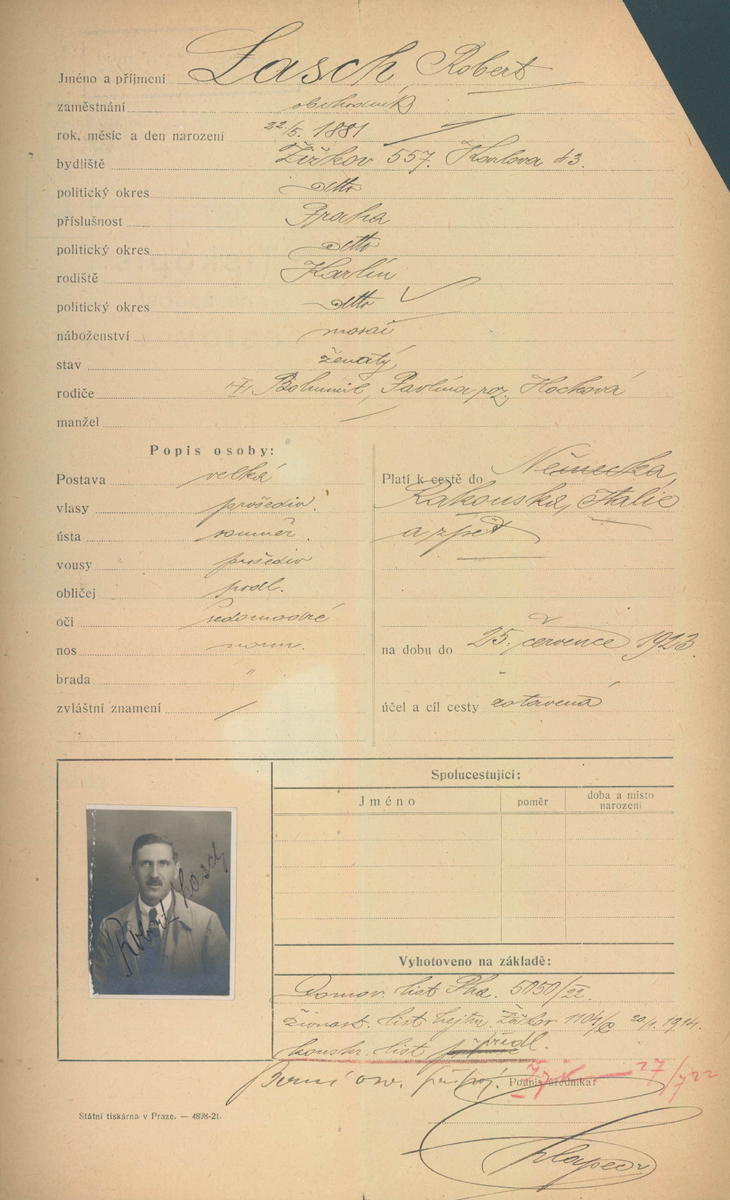 Jméno a příjmení Lasch Robert
zaměstnání obchodník
rok, měsíc a den narození 22/5. 1881
bydliště Žižkov 557. Karlova 43.
politický okres detto
příslušnost Praha
politický okres detto
rodiště Karlín
politický okres detto
náboženství mosai
stav ženatý
rodiče Bohumil, Pavlína roz. Hocková
manžel
Popis osoby:
Postava velká
vlasy prošediv.
ústa souměr.
vousy prošediv
obličej podl.
oči šedomodré
nos norm.
brada "
zvláštní znamení /
Platí k cestě do Německa,
Rakouska, Italie
a zpět
na dobu do 25. července 1923.
účel a cíl cesty zotavená
Robert Lasch
Spolucestující:
Jméno poměr doba a místo narození
Vyhotoveno na základě:
Domov. list Pha. 5050/22.
živnost. list hejtm. Žižkov 1104/ 20/1. 1914.
konskr. list předl.
Berní osv. připoj.
27/7 22
Podpis úředníka:
Státní tiskárna v Praze. — 4898-21.